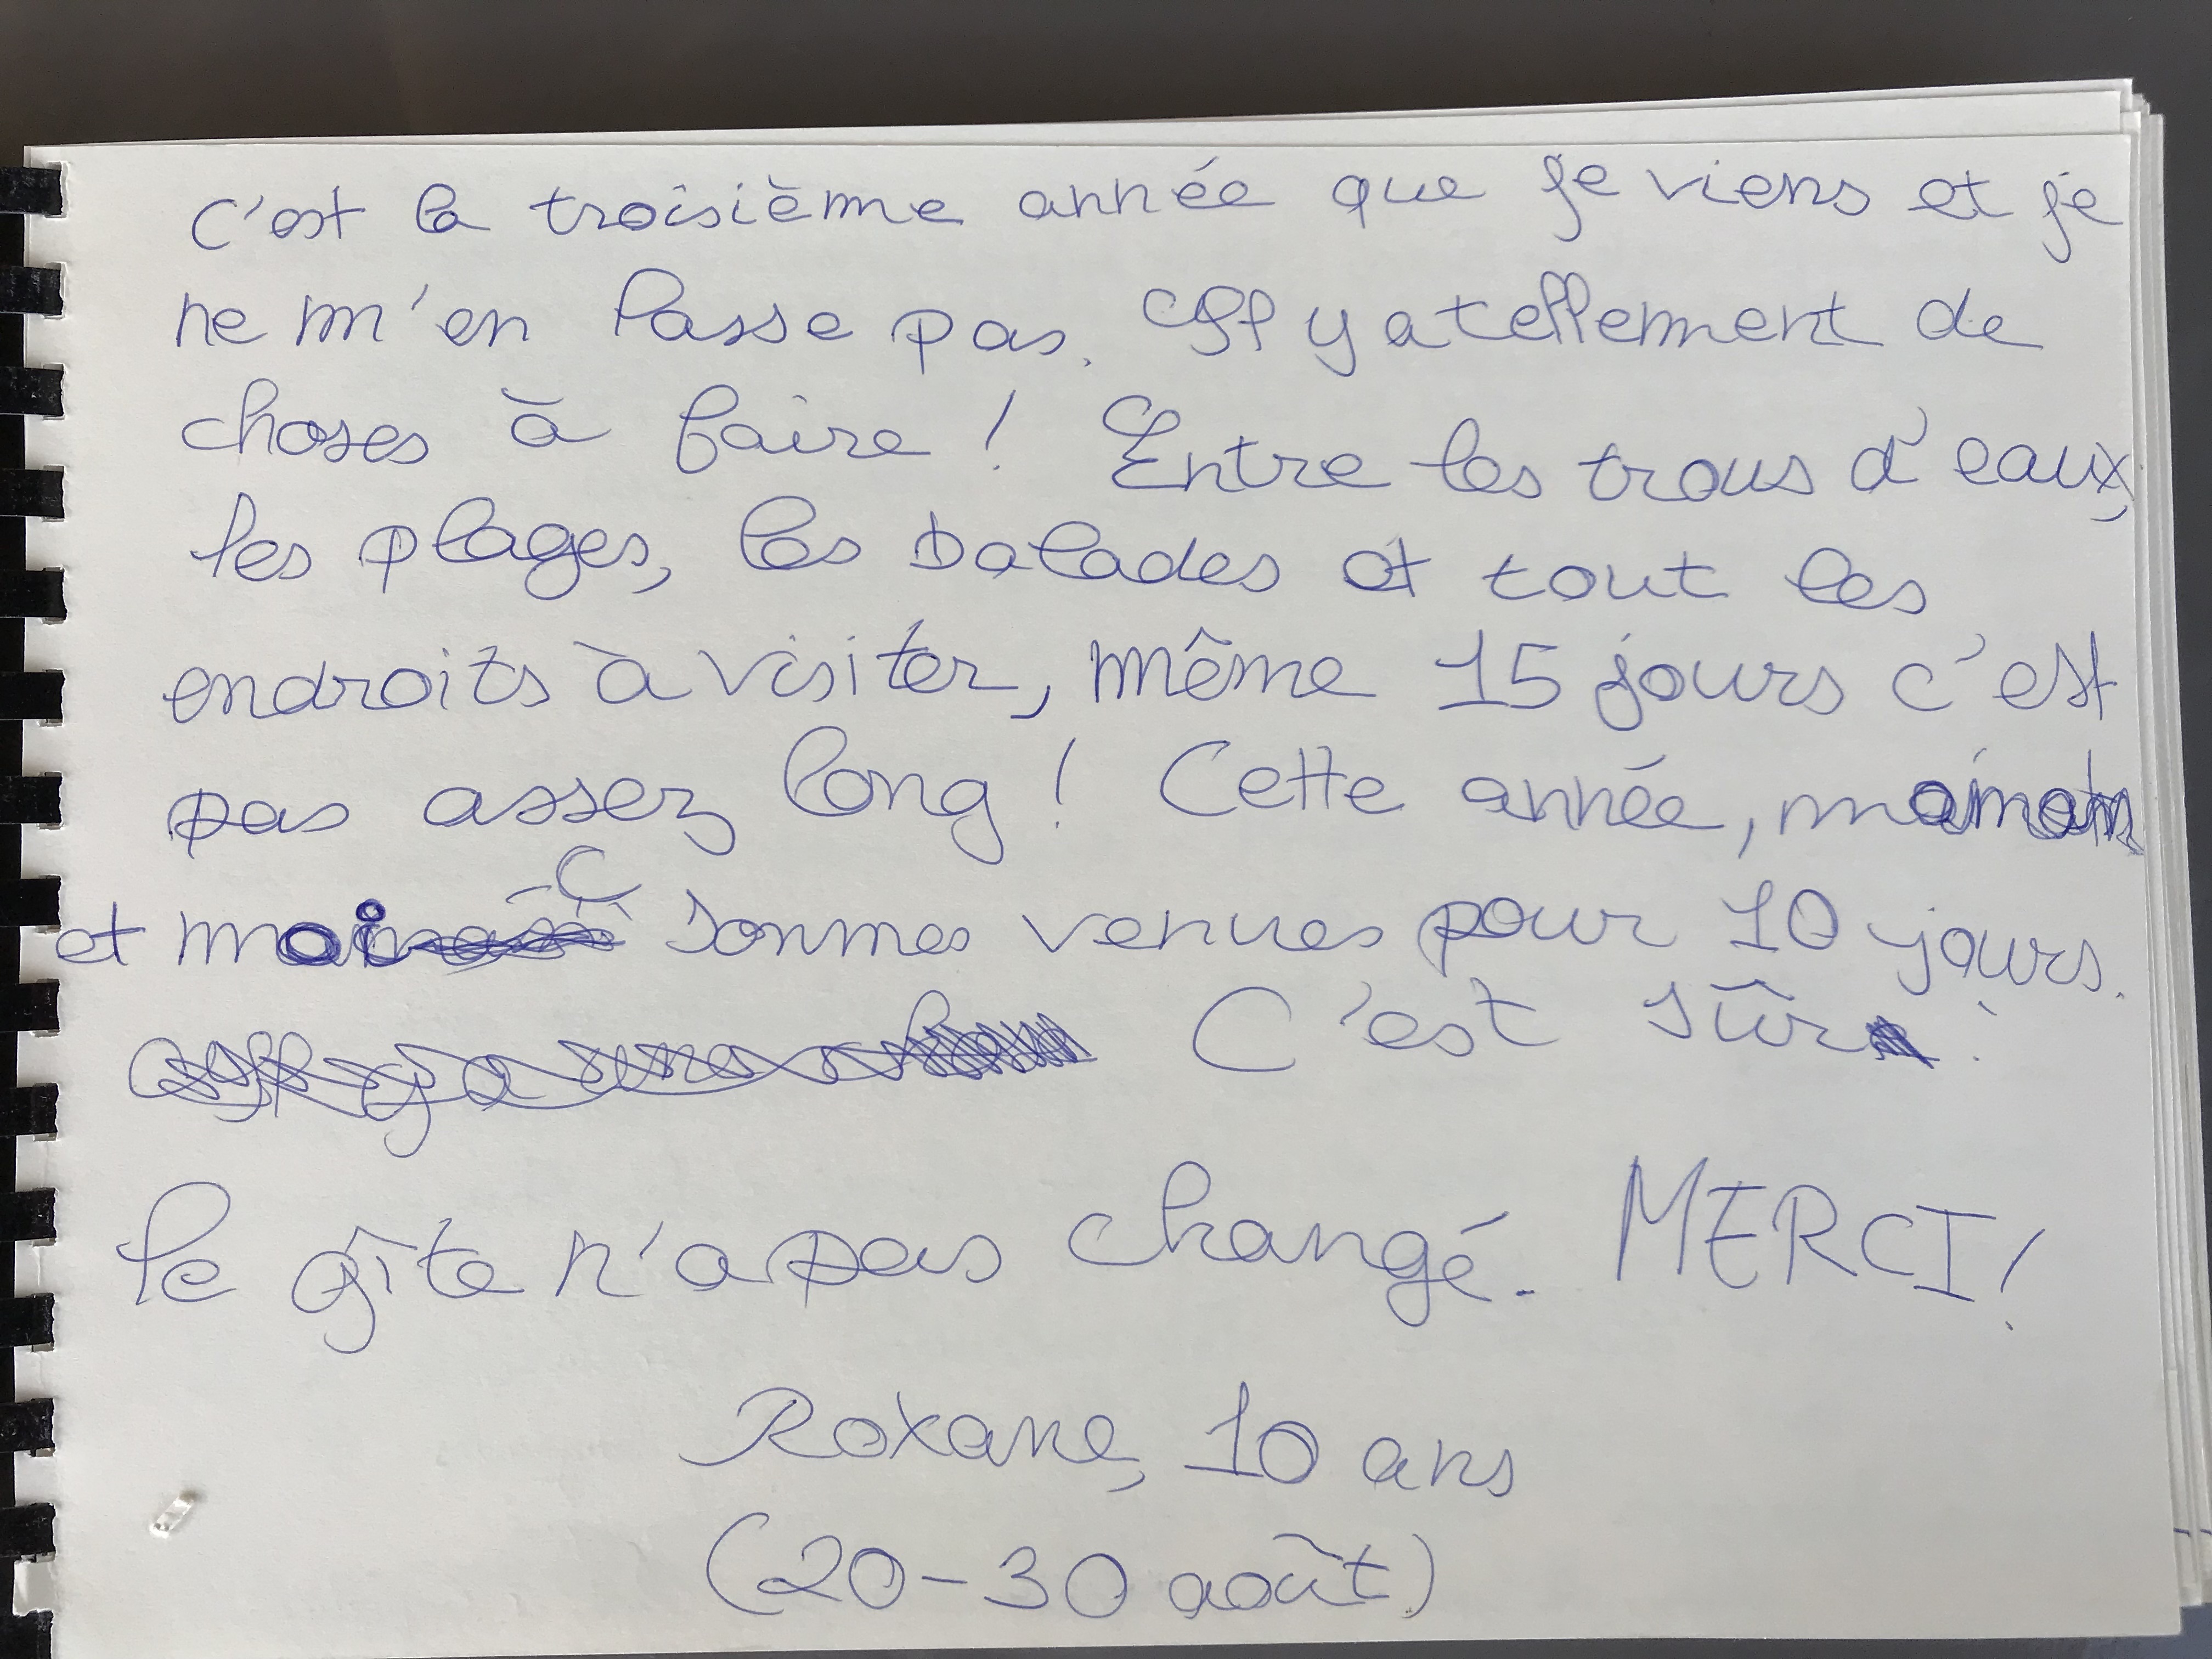 C'est la troisième année que je viens et je
ne m'en lasse pas. Il y a tellement de
choses à faire ! Entre les trous d'eaux,
les plages, les balades et tout les
endroits à visiter, même 15 jours c'est
pas assez long ! Cette année, maman
et moi sommes venues pour 10 jours.
C'est sûr :
le gîte n'a pas changé. MERCI !
Roxane, 10 ans
(20-30 août)